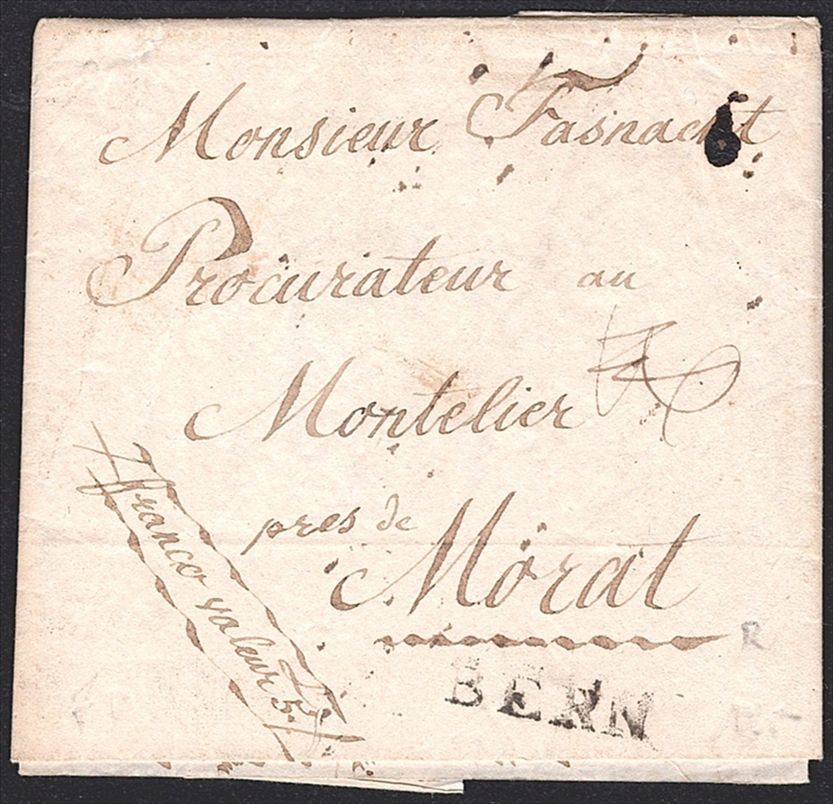 Monsieur Fasnacht
Procurateur au
Montelier
pres de
Morat
franco valeur 5.
BERN
R